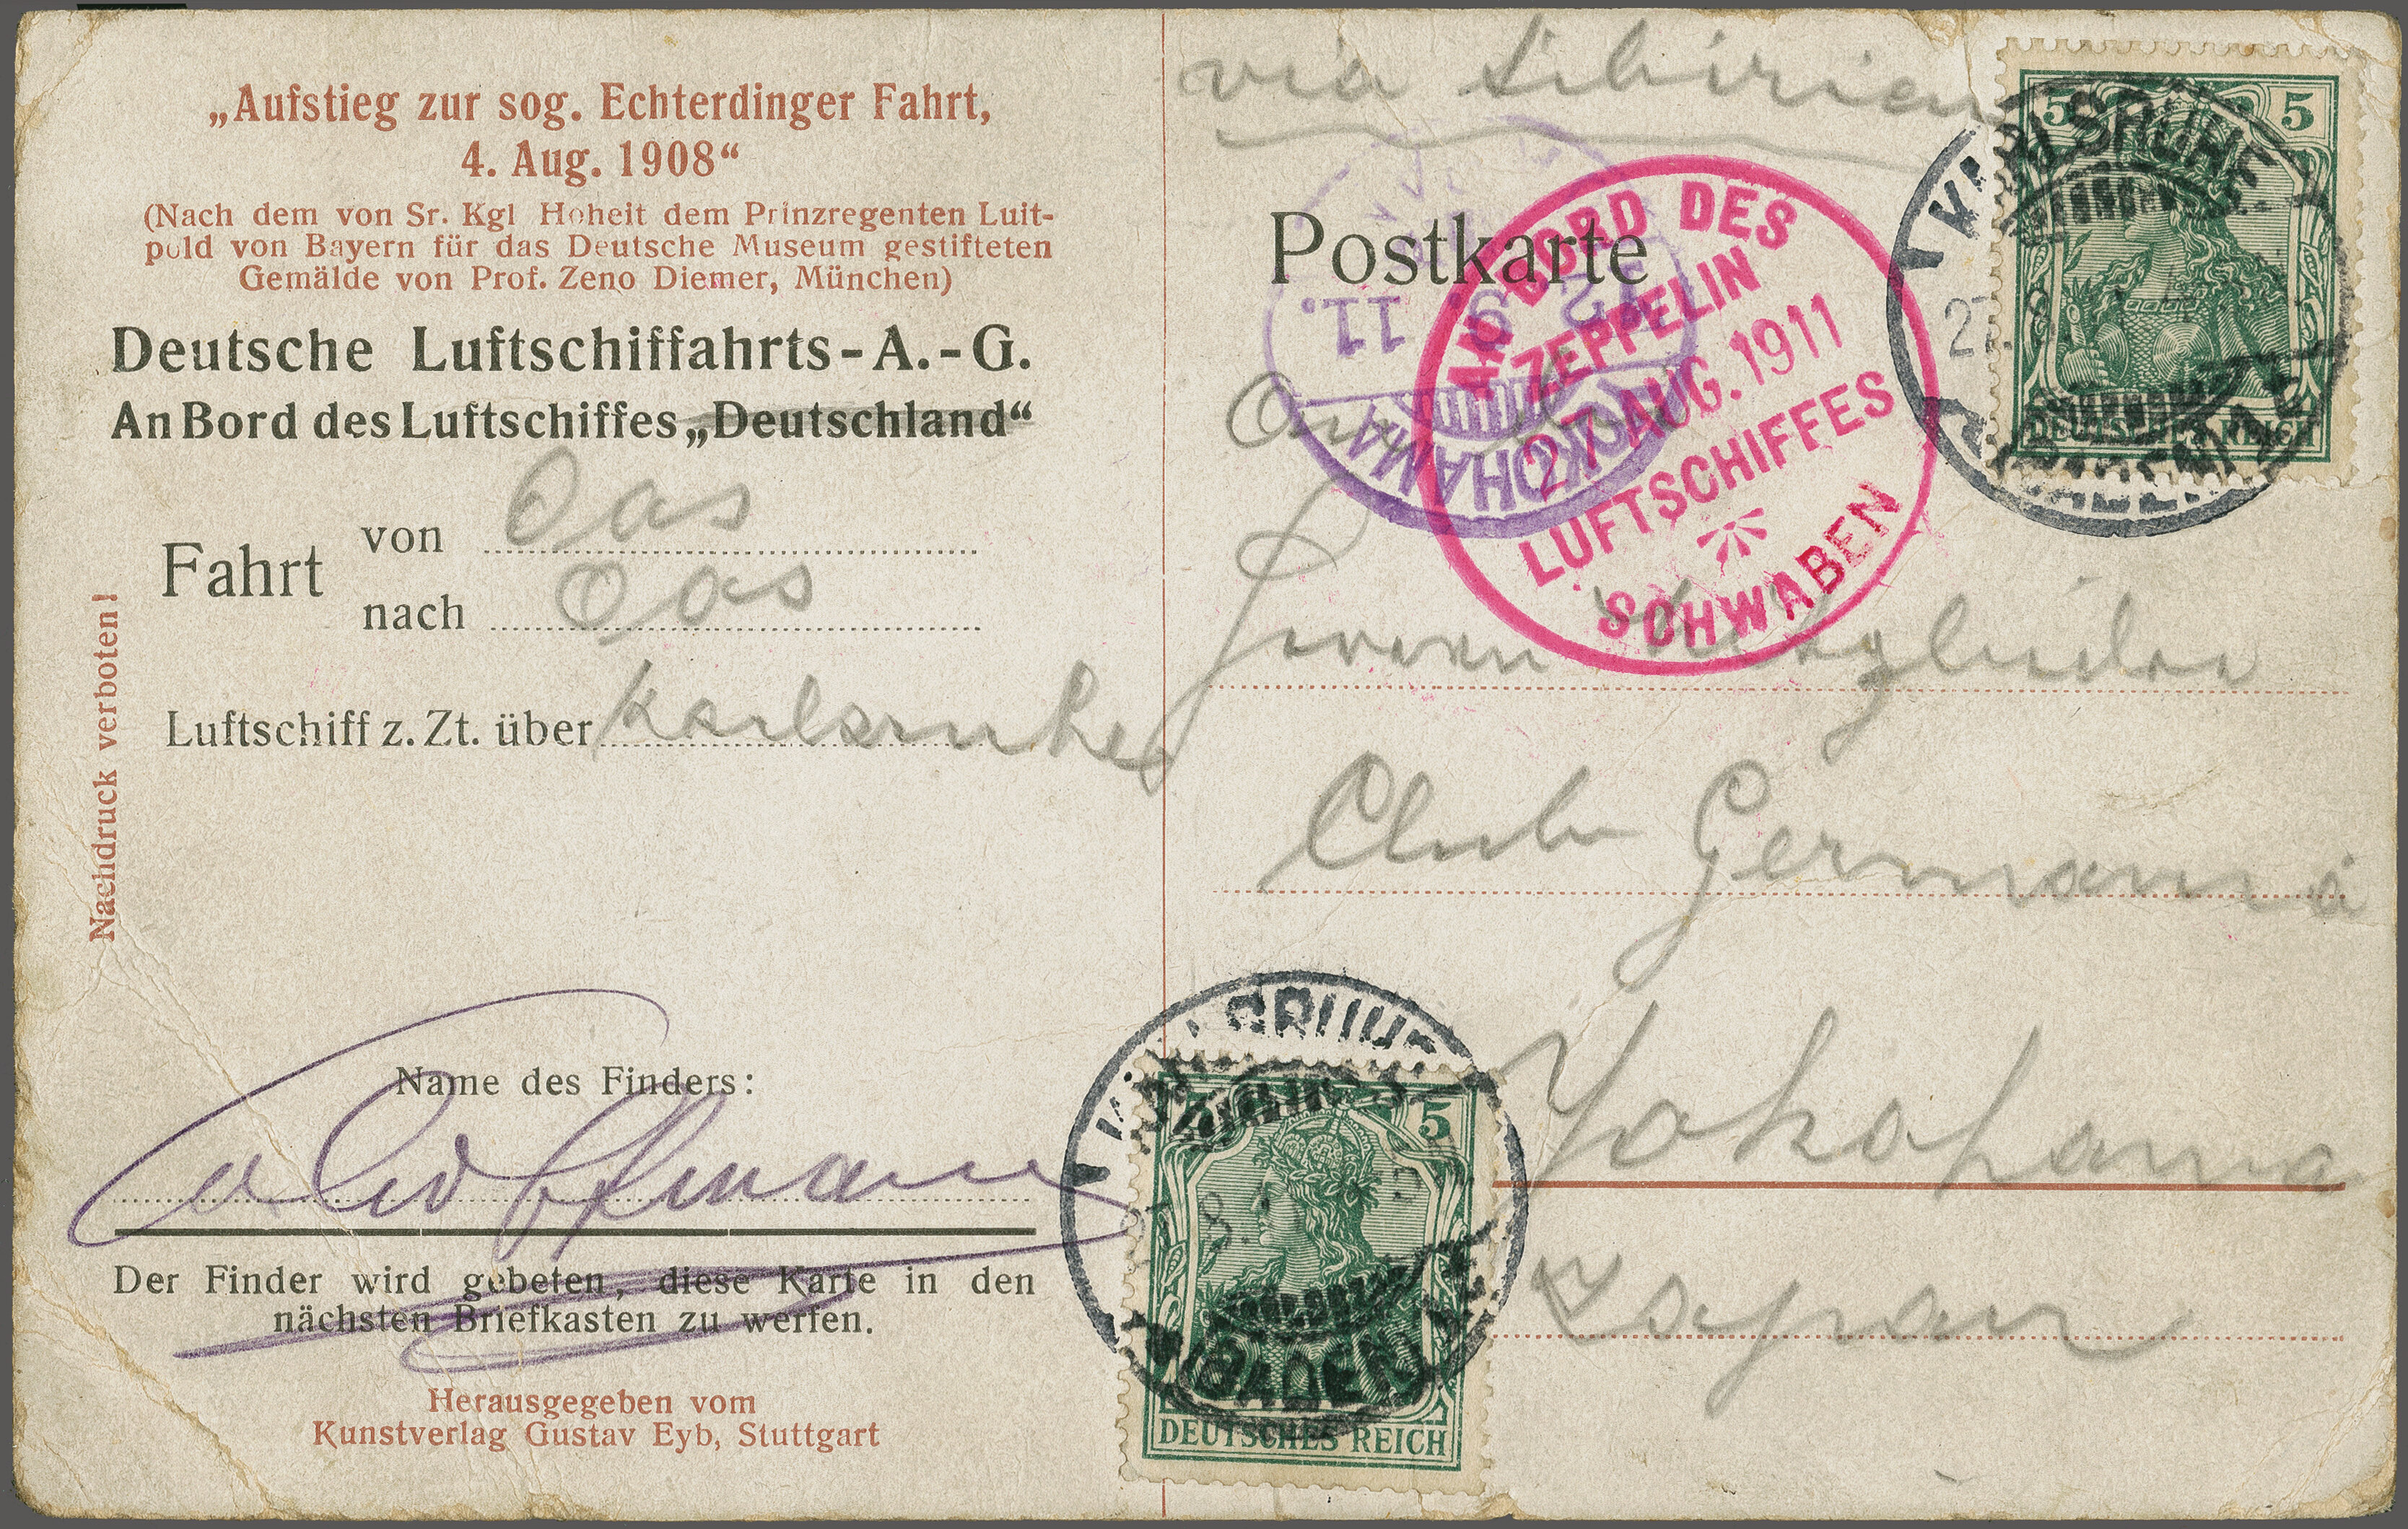 „Aufstieg zur sog. Echterdinger Fahrt,
4. Aug. 1908“
(Nach dem von Sr. Kgl Hoheit dem Prinzregenten Luit-
pold von Bayern für das Deutsche Museum gestifteten
Gemälde von Prof. Zeno Diemer, München)
Deutsche Luftschiffahrts-A.-G.
An Bord des Luftschiffes „Deutschland“
Fahrt von Oos
nach Oos
Luftschiff z. Zt. über Karlsruhe
Nachdruck verboten!
Name des Finders:
Der Finder wird gebeten, diese Karte in den
nächsten Briefkasten zu werfen.
Herausgegeben vom
Kunstverlag Gustav Eyb, Stuttgart
via Sibirien
Postkarte
AN BORD DES
ZEPPELIN
27 AUG. 1911
LUFTSCHIFFES
SCHWABEN
YOKOHAMA
12 9. 11.
An die
Herren Mitglieder
Club Germania
Yokohama
Japan
5 5
DEUTSCHES REICH
KARLSRUHE
5
DEUTSCHES REICH
KARLSRUHE
(BADEN)